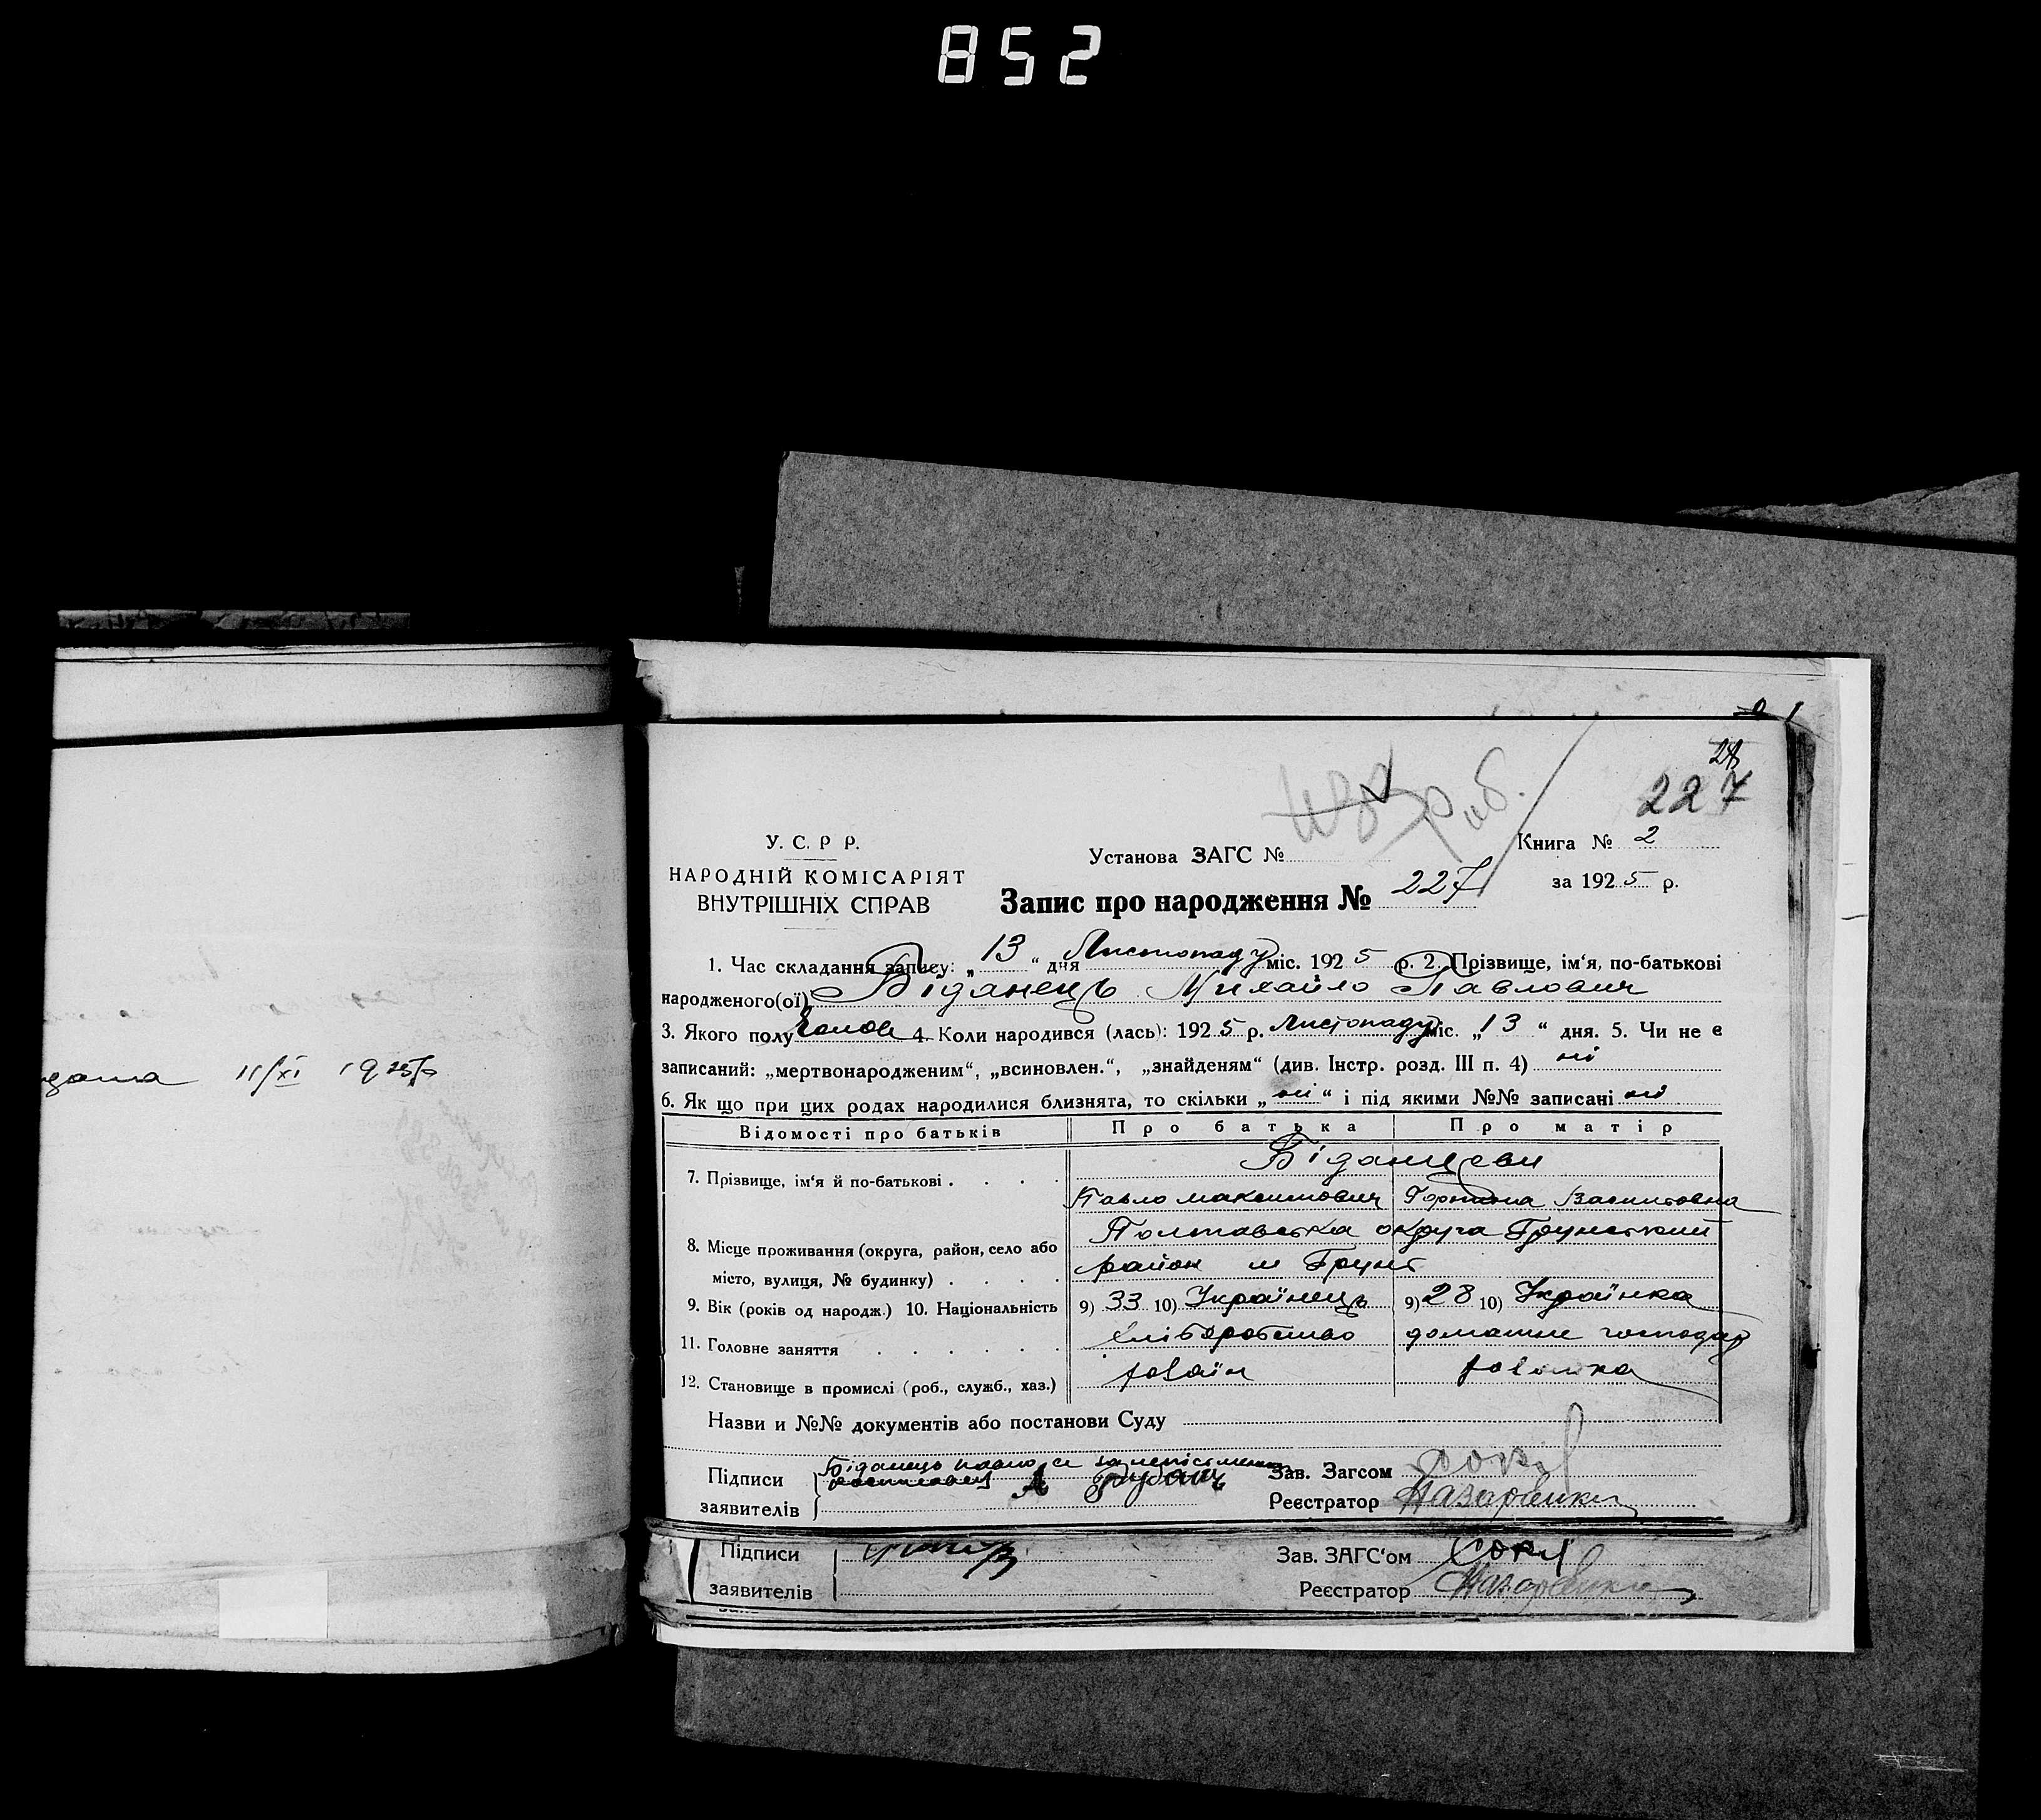 852
дата 11/XI 1925 р
28
227
У. С. Р. Р.
НАРОДНІЙ КОМІСАРІЯТ
ВНУТРІШНІХ СПРАВ
Установа ЗАГС №
Книга № 2
за 1925 р.
Запис про народження № 227
1. Час складання запису: „13“ дня Листопаду міс. 1925 р. 2. Прізвище, ім‘я, по-батькові
народженого(ої) Біданець Михайло Павлович
3. Якого полу Чолов 4. Коли народився (лась): 1925 р. Листопаду міс. „13“ дня. 5. Чи не є
записаний: „мертвонародженим“, „всиновлен.“, „знайденям“ (див. Інстр. розд. III п. 4) ні
6. Як що при цих родах народилися близнята, то скільки „ні“ і під якими №№ записані ні
Відомості про батьків Про батька Про матір
7. Прізвище, ім‘я й по-батькові . . . . Біданцеви
Павло Максимович Горпина Василовна
8. Місце проживання (округа, район, село або Полтавська округа Грунський
місто, вулиця, № будинку) . . . . район м Грунь
9. Вік (років од народж.) 10. Національність 9) 33 10) Українець 9) 28 10) Українка
11. Головне заняття . . . . . . хліборобство домашнє господар
12. Становище в промислі (роб., служб., хаз.) хазаїн
Назви и №№ документів або постанови Суду
Підписи Біданець Павло а за неписьмен
заявителів А
Зав. Загсом Сокіл
Реєстратор Назаренко
Підписи
заявителів
Зав. ЗАГС‘ом Сокіл
Реєстратор Назаренко